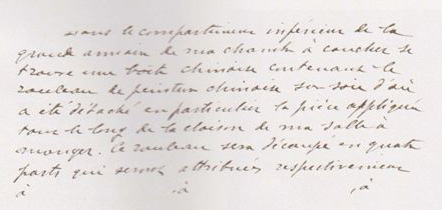 Dans le compartiment inférieur de la
grande armoire de ma chambre à coucher se
trouve une boîte chinoise contenant le
rouleau de peinture chinoise sur soie d'où
a été détaché en particulier la pièce appliquée
tout le long de la cloison de ma salle à
manger. Ce rouleau sera découpé en quatre
parts qui seront attribuées respectivement
à , à , à